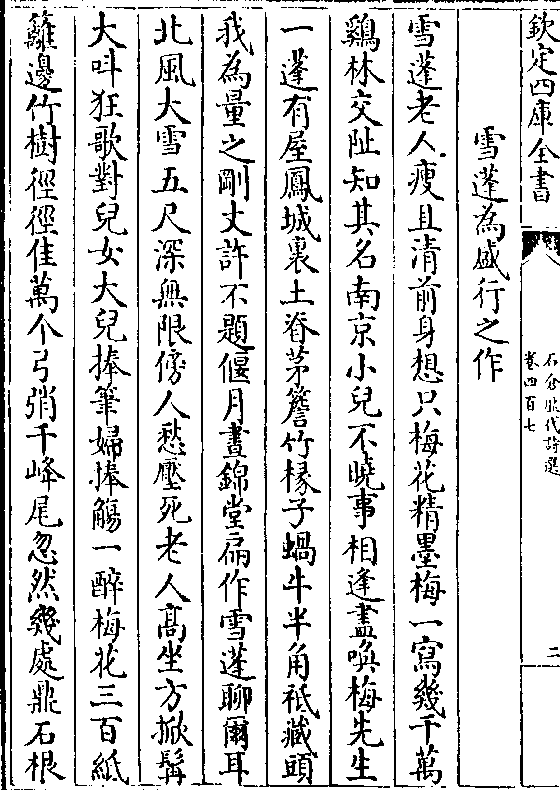 欽定四庫全書
石倉歷代詩選
卷四百七
二
雪蓬為盛行之作
雪蓬老人瘦且清前身想只梅花精墨梅一寫幾千萬
鷄林交阯知其名南京小兒不曉事相逢盡喚梅先生
一蓬有屋鳳城裏土脊茅簷竹椽子蝸牛半角秖藏頭
我為量之剛丈許不題偃月晝錦堂扁作雪蓬聊爾耳
北風大雪五尺深無限傍人愁壓死老人髙坐方掀髯
大呌狂歌對兒女大兒捧筆婦捧觴一醉梅花三百紙
籬邊竹樹徑徑隹萬个弓弰千峰尾忽然幾處鼎石根